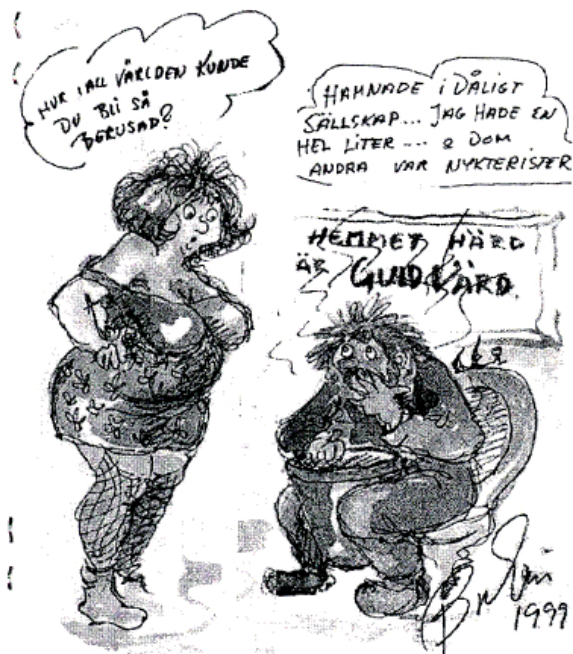 HUR I ALL VÄRLDEN KUNDE
DU BLI SÅ
BERUSAD?
HAMNADE I DÅLIGT
SÄLLSKAP... JAG HADE EN
HEL LITER .... & DOM
ANDRA VAR NYKTERISTER
HEMMET HÄRD
ÄR GULD VÄRD.
1999